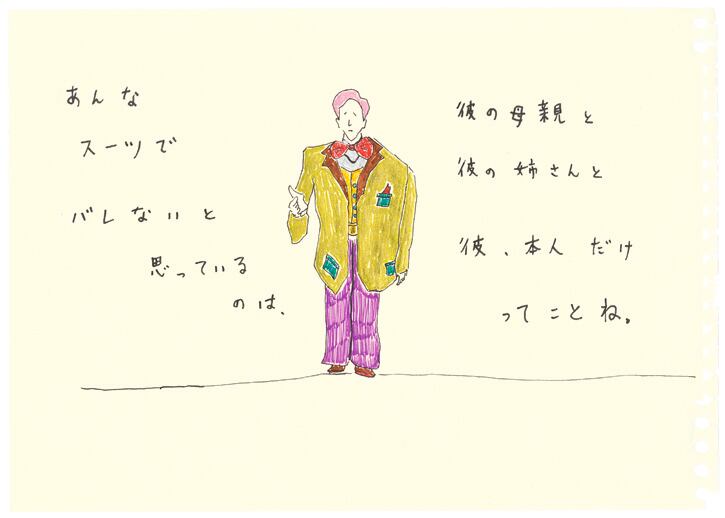 あんな
スーツで
バレないと
思っている
のは、
彼の母親と
彼の姉さんと
彼、本人だけ
ってことね。